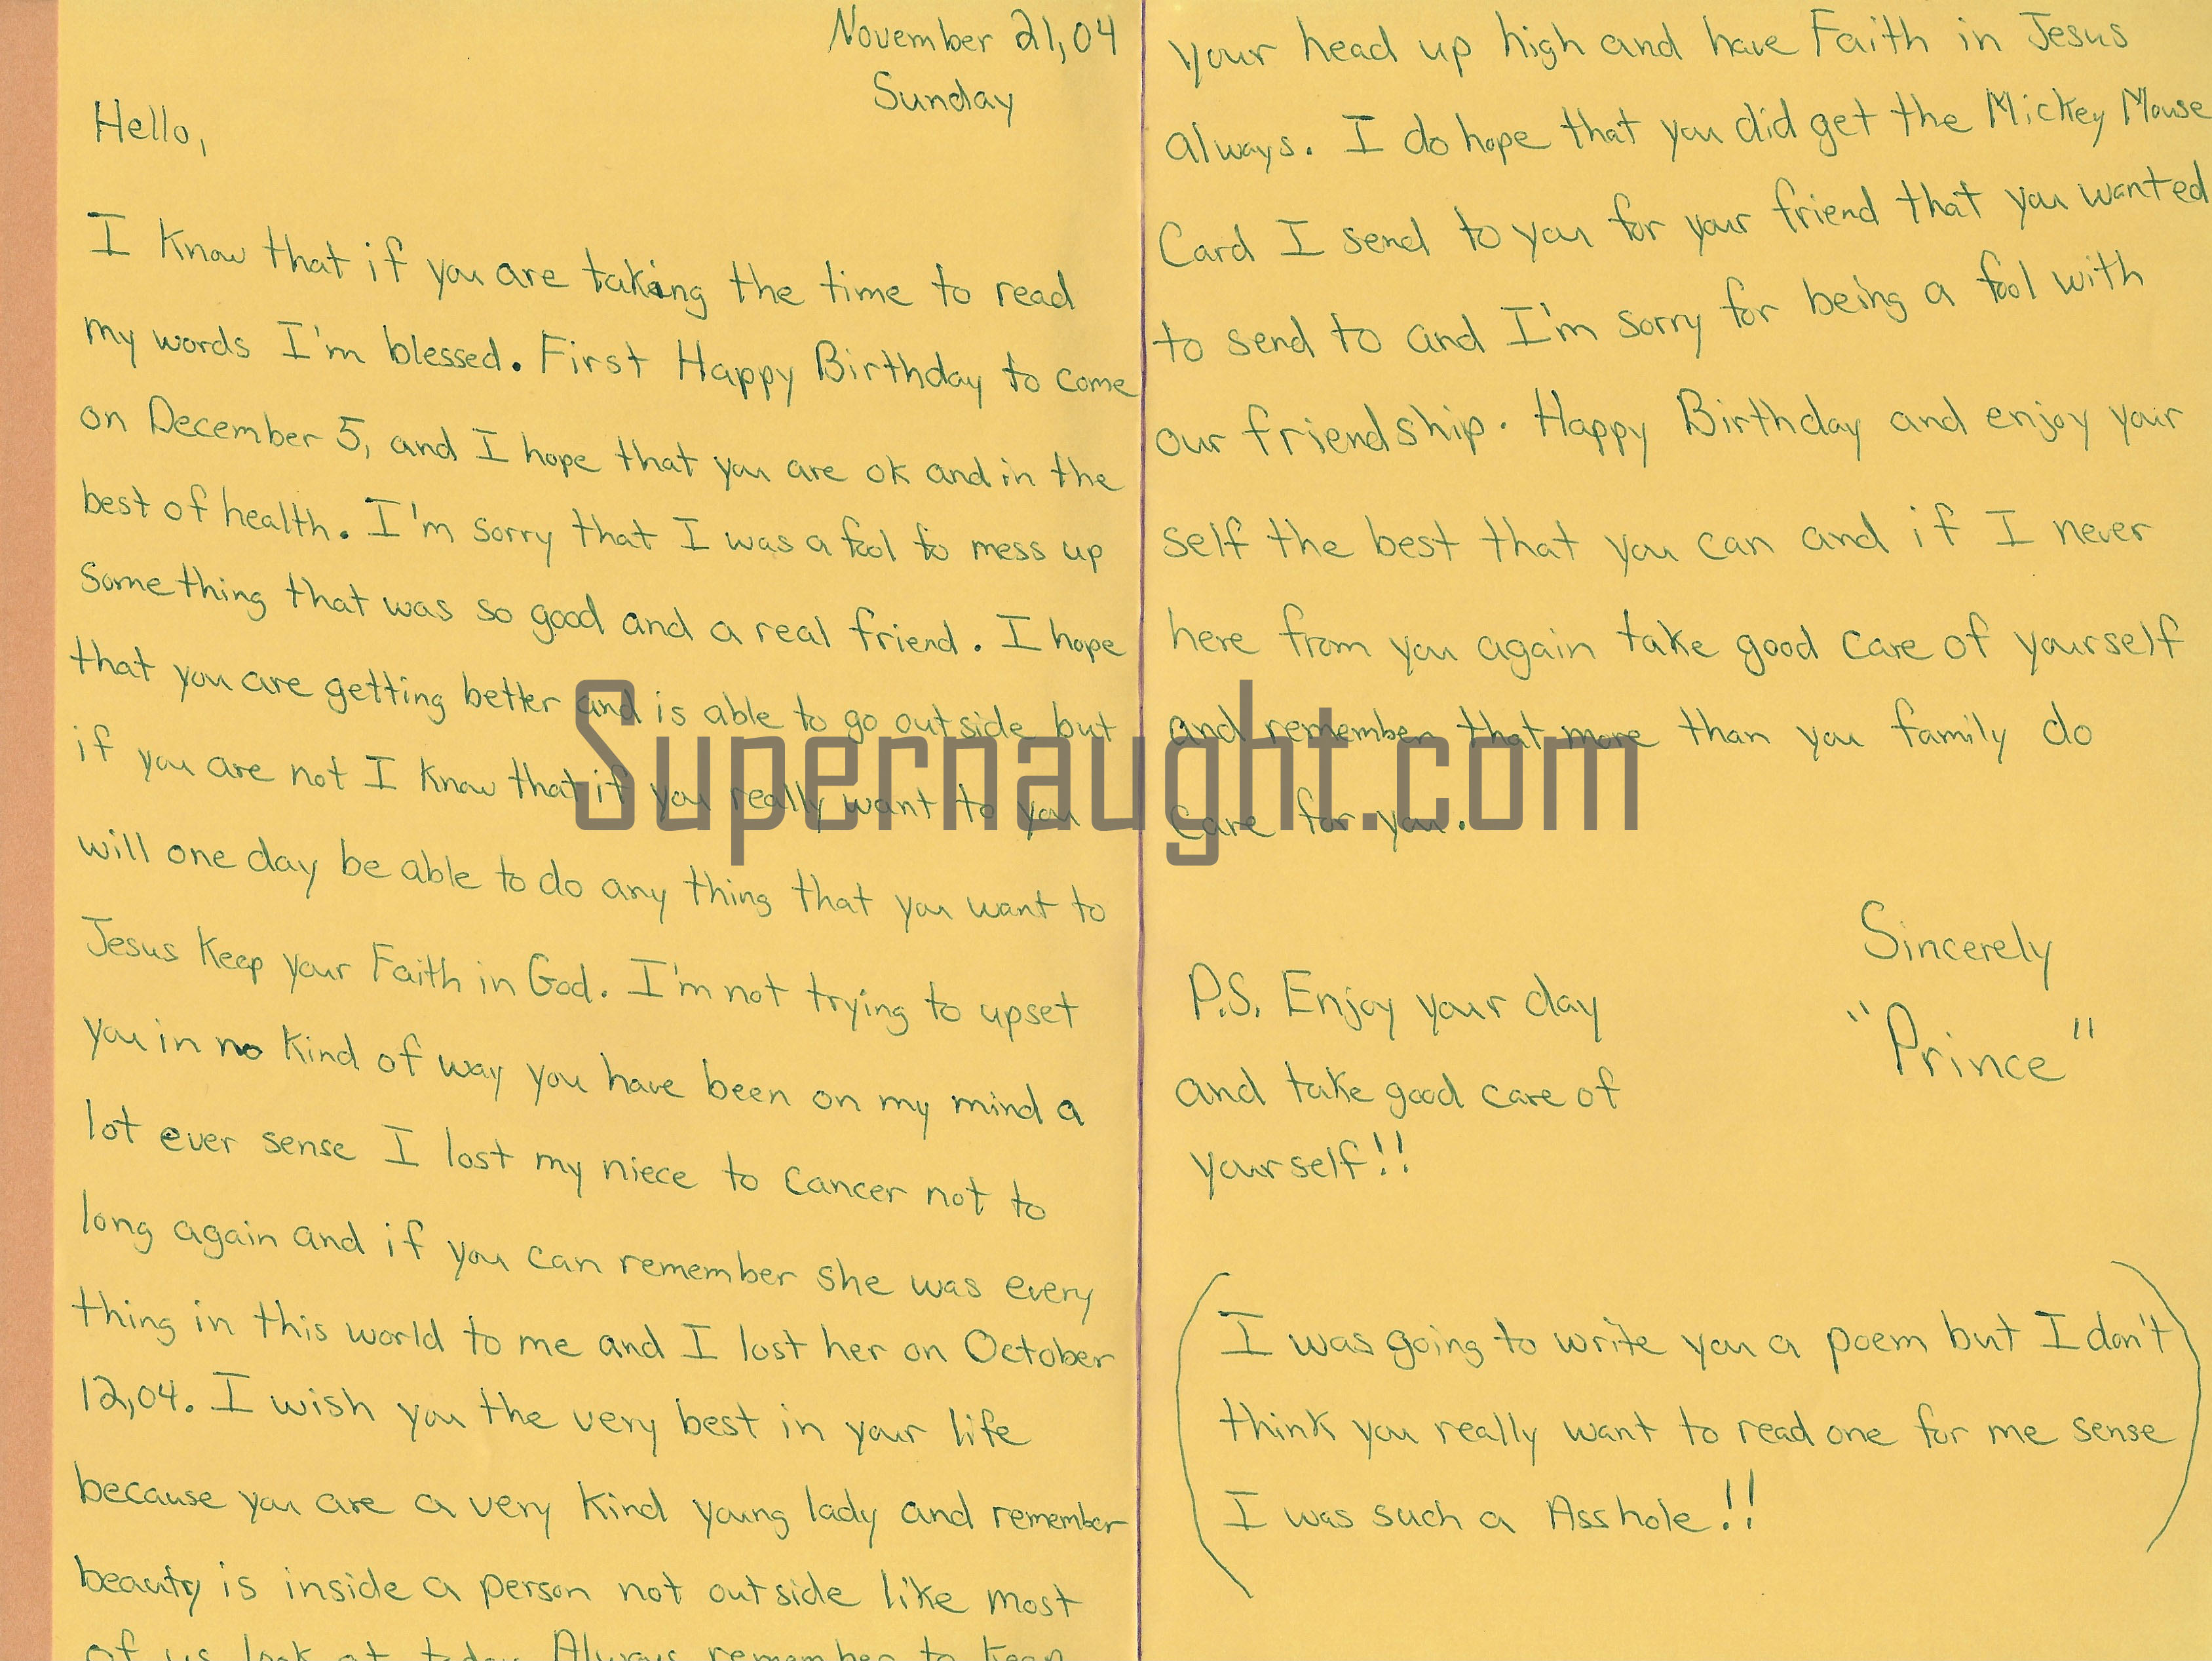 November 21,04
Sunday
Hello,
I Know that if you are taking the time to read
my words I'm blessed. First Happy Birthday to come
on December 5, and I hope that you are ok and in the
best of health. I'm sorry that I was a fool to mess up
Something that was so good and a real friend. I hope
that you are getting better and is able to go outside but
if you are not I Know that if you really want to you
will one day be able to do any thing that you want to
Jesus Keep your Faith in God. I'm not trying to upset
you in no Kind of way you have been on my mind a
lot ever sense I lost my niece to cancer not to
long again and if you can remember she was every
thing in this world to me and I lost her on October
12,04. I wish you the very best in your life
because you are a very Kind young lady and remember
beauty is inside a person not outside like most
of us look at today. Always remember to Keep
your head up high and have Faith in Jesus
always. I do hope that you did get the Mickey Mouse
Card I send to you for your friend that you wanted
to send to and I'm sorry for being a fool with
our friendship. Happy Birthday and enjoy your
self the best that you can and if I never
here from you again take good care of yourself
and remember that more than you family do
care for you.
Sincerely
"Prince"
P.S. Enjoy your day
and take good care of
yourself!!
(I was going to write you a poem but I don't
think you really want to read one for me sense
I was such a Asshole!!)
Supernaught.com